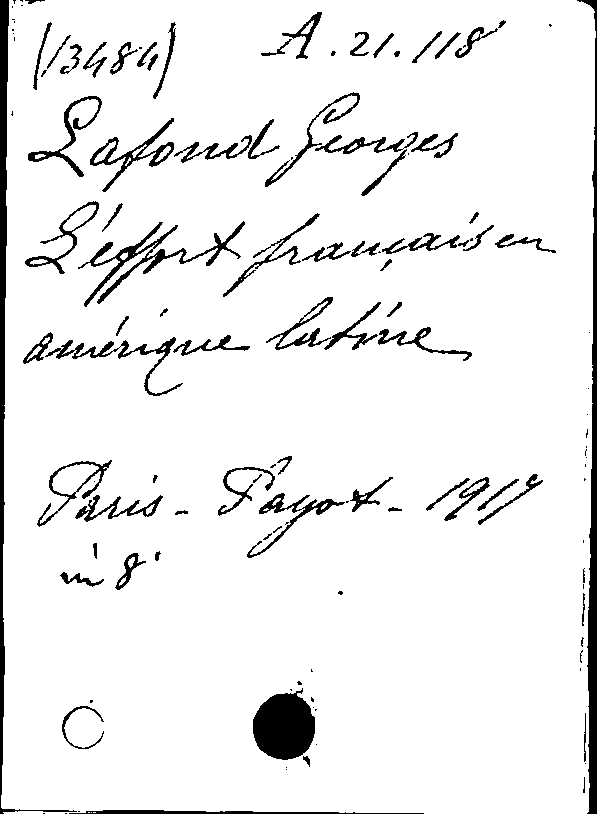 (13484) A.21.118
Lafond Georges
L'effort français en
amérique latine
Paris - Payot - 1917
in 8°